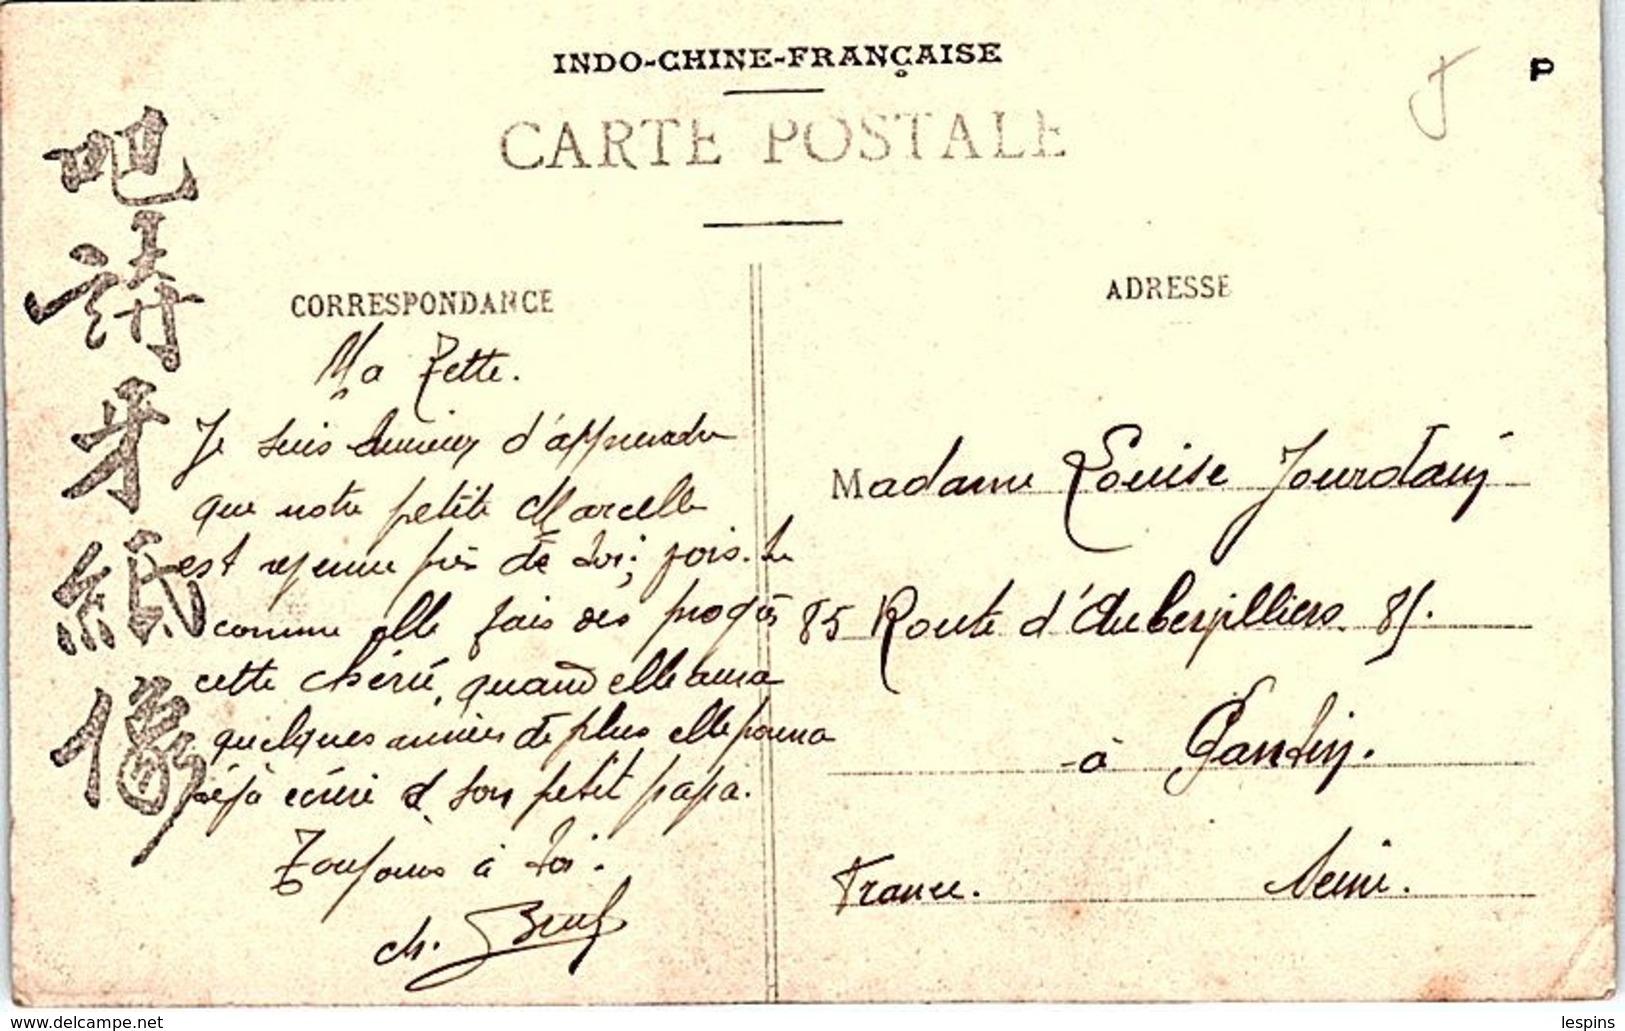 INDO-CHINE-FRANÇAISE
P
CARTE POSTALE
吧
請
牙
紙
像
CORRESPONDANCE
Ma Zette.
Je suis heureux d'apprendre
que notre petite Marcelle
est revenue près de toi; vois-tu
comme elle fais des progrès
cette chérie, quand elle aura
quelques années de plus elle pourra
déjà écrire à son petit papa.
Toujours à toi.
ch.
ADRESSE
Madame Louise Jourdain
85 Route d'Aubervilliers. 85.
à Pantin.
France. Seine.
www.delcampe.net
lespins